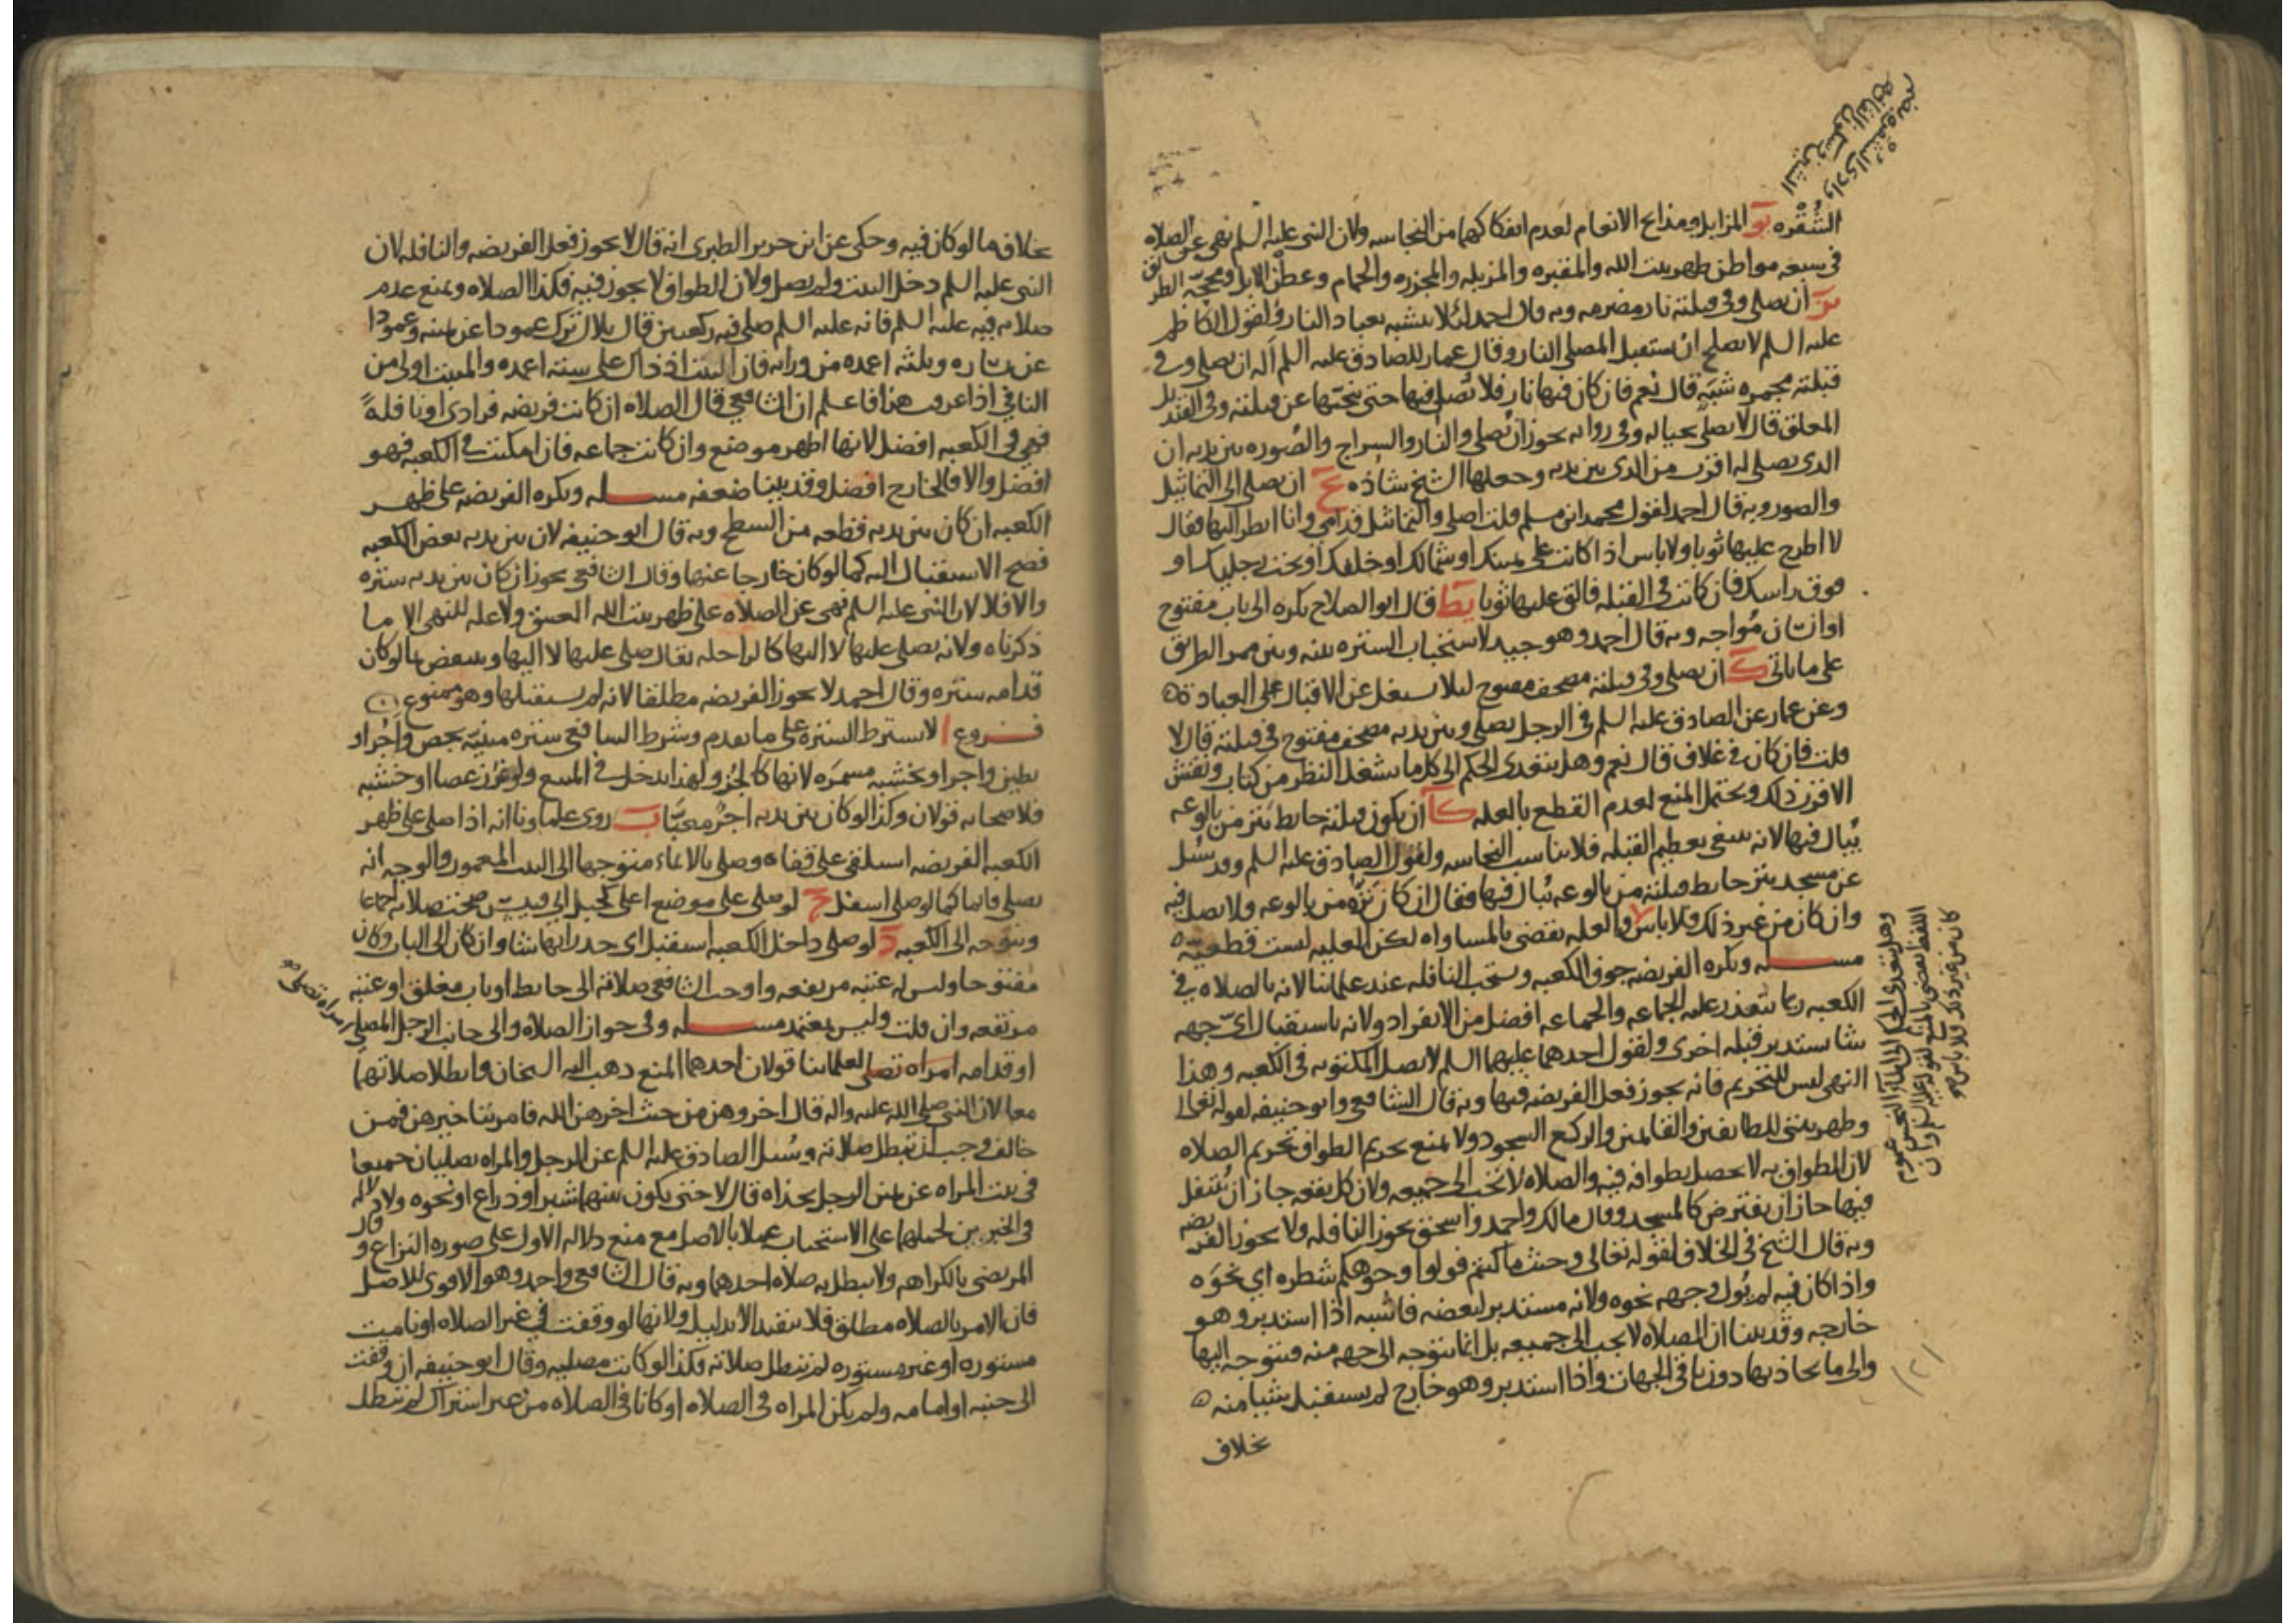 الشقره يو المزابل ومذابح الانعام لعدم انفكاكها من النجاسه ولان النبى عليه السلم نهى عن الصلاه
فى سبعه مواطن ظهر بيت الله والمقبره والمزبله والمجزره والحمام وعطن الابل ومحجه الطريق
يز ان يصلى وفى قبلته نار مضرمه وبه قال احمد لئلا يتشبه بعباد النار ولقول الكاظم
عليه السلم لا يصلح ان يستقبل المصلى النار وقال عمار للصادق عليه السلم أله ان يصلى وفى
قبلته مجمره شبه قال نعم فان كان فيها نار فلا تصلى فيها حتى ينحيها عن قبلته وفى القنديل
المعلق قال لا يصلى بحياله وفى روايه يجوز ان يصلى والنار والسراج والصوره بين يديه ان
الذى يصلى له اقرب من الذى بين يديه وجعلها الشيخ شاذه يح ان يصلى الى التماثيل
والصور وبه قال احمد لقول محمد ابن مسلم قلت اصلى والتماثيل قدامى وانا انظر اليها فقال
لا اطرح عليها ثوبا ولا باس اذا كانت على يمينك او شمالك او خلفك او تحت رجليك او
فوق راسك فان كانت فى القبله فالق عليها ثوبا يط قال ابو الصلاح يكره الى باب مفتوح
او انسان مواجه وبه قال احمد وهو جيد لاستحباب الستره بينه وبين ممر الطريق
على ما ياتى ك ان يصلى وفى قبلته مصحف مفتوح ليلا يشغل عن الاقبال على العباده
وعن عمار عن الصادق عليه السلم فى الرجل يصلى وبين يديه مصحف مفتوح فى قبلته قال لا
قلت فان كان فى غلاف قال نعم وهل يتعدى الحكم الى كل ما يشغل النظر من كتاب ونقش
الاقرب ذلك ويحتمل المنع لعدم القطع بالعله كا ان يكون قبلته حايط ينز من بالوعه
يبال فيها لانه ينبغى تعظيم القبله فلا يناسب النجاسه ولقول الصادق عليه السلم وقد سئل
عن مسجد ينز حايط قبلته من بالوعه يبال فيها فقال ان كان نزه من بالوعه فلا يصل فيه
وان كان من غير ذلك فلا باس والعله تقضى بالمساواه لكن العليه ليست قطعيه
مسله ويكره الفريضه جوف الكعبه ويستحب النافله عند علمائنا لانه بالصلاه فى
الكعبه ربما تتعذر عليه الجماعه والجماعه افضل من الانفراد ولانه باستقبال اى جهه
شا يستدبر قبله اخرى ولقول احدهما عليهما السلم لا يصل المكتوبه فى الكعبه وهذا
النهى ليس للتحريم فانه يجوز فعل الفريضه فيها وبه قال الشافعى وابو حنيفه لقوله تعالى
وطهر بيتى للطايفين والقايمين والركع السجود ولا يمنع تحريم الطواف تحريم الصلاه
لان الطواف به لا يحصل بطوافه فيه والصلاه لا تجب الى جميعه ولان كل بقعه جاز ان يتنفل
فيها جاز ان يفترض كالمسجد وقال مالك واحمد واسحق يجوز النافله ولا يجوز الفريضه
وبه قال الشيخ فى الخلاف لقوله تعالى وحيث ما كنتم فولوا وجوهكم شطره اي نحوه
واذا كان فيه لم يول وجهه نحوه ولانه مستدبر لبعضه فاشبه اذا استدبر وهو
خارجه وقد بينا ان الصلاه لا يجب الى جميعه بل انما يتوجه الى جهه منه فيتوجه اليها
والى ما يحاذيها دون باقى الجهات واذا استدبر وهو خارج لم يستقبل شيا منه
بخلاف
وادى الشقره بضم
الشين وسكون القاف
وهل يتعدى الحكم الى الماء النجس عموم
اللفظ يقضى بالمنع لقوله عليه السلم وان
كان من غير ذلك فلا باس
بخلاف ما لو كان فيه وحكى عن ابن جرير الطبرى انه قال لا يجوز فعل الفريضه والنافله لان
النبى عليه السلم دخل البيت ولم يصل ولان الطواف لا يجوز فيه فكذا الصلاه ويمنع عدم
صلاته فيه عليه السلم فانه عليه السلم صلى فيه ركعتين قال بلال ترك عمودا عن يمينه وعمودا
عن يساره وثلثه اعمده من ورائه فان البيت اذ ذاك على سته اعمده والمثبت اولى من
النافى اذا عرفت هذا فاعلم ان الشافعى قال الصلاه ان كانت فريضه فرادى او نافله
فهى فى الكعبه افضل لانها اطهر موضع وان كانت جماعه فان امكنت فى الكعبه فهو
افضل والا فالخارج افضل وقد بينا ضعفه مسله ويكره الفريضه على ظهر
الكعبه ان كان بين يديه قطعه من السطح وبه قال ابو حنيفه لان بين يديه بعض الكعبه
فصح الاستقبال اليه كما لو كان خارجا عنها وقال الشافعى يجوز ان كان بين يديه ستره
والا فلا لان النبى عليه السلم نهى عن الصلاه على ظهر بيت الله العتيق ولا عله للنهى الا ما
ذكرناه ولانه يصلى عليها لا اليها كالراحله يقال صلى عليها لا اليها وينتقض بما لو كان
قدامه ستره وقال احمد لا يجوز الفريضه مطلقا لانه لم يستقبلها وهو ممنوع
فروع ا لا يشترط الستره على ما تقدم وشرط الشافعى ستره مبنيه بجص واجر او
بطين واجر او بخشبه مسمره لانها كالجزو ولهذا يدخل فى المبيع ولو غرز عصا او خشبه
فلاصحابه قولان وكذا لو كان بين يديه اجر معبا ب روى علماونا انه اذا صلى على ظهر
الكعبه الفريضه استلقى على قفاه وصلى بالايماء متوجها الى البيت المعمور والوجه انه
يصلى قايما كما لو صلى اسفل ج لو صلى على موضع اعلى كجبل ابى قبيس صحت صلاته اجماعا
ويتوجه الى الكعبه د لو صلى داخل الكعبه استقبل اى جدرانها شا وان كان الى الباب وكان
مفتوحا وليس له عتبه مرتفعه واوجب الشافعى صلاته الى حايط او باب مغلق او عتبه
مرتفعه وان قلت وليس بمعتمد مسله وفى جواز الصلاه والى جانب الرجل المصلى
او قدامه امراه تصلى لعلمائنا قولان احدهما المنع ذهب اليه الشيخان وابطلا صلاتهما
معا لان النبى صلى الله عليه واله قال اخروهن من حيث اخرهن الله فامر بتاخيرهن فمن
خالف وجب ان تبطل صلاته وسئل الصادق عليه السلم عن الرجل والمراه يصليان جميعا
فى بيت المراه عن يمين الرجل بحذاه قال لا حتى يكون بينهما شبر او ذراع او نحوه ولا دلاله
فى الخبرين لحملهما على الاستحباب عملا بالاصل مع منع دلاله الاول على صوره النزاع وقال
المرتضى بالكراهه ولا يبطل به صلاه احدهما وبه قال الشافعى واحمد وهو الاقوى للاصل
فان الامر بالصلاه مطلق فلا يتقيد الا بدليل ولانها لو وقفت فى غير الصلاه او نامت
مستوره او غير مستوره لم تبطل صلاته فكذا لو كانت مصليه وقال ابو حنيفه ان وقفت
الى جنبه او امامه ولم يكن المراه فى الصلاه او كانا فى الصلاه من غير اشتراك لم تبطل
امراه تصلى